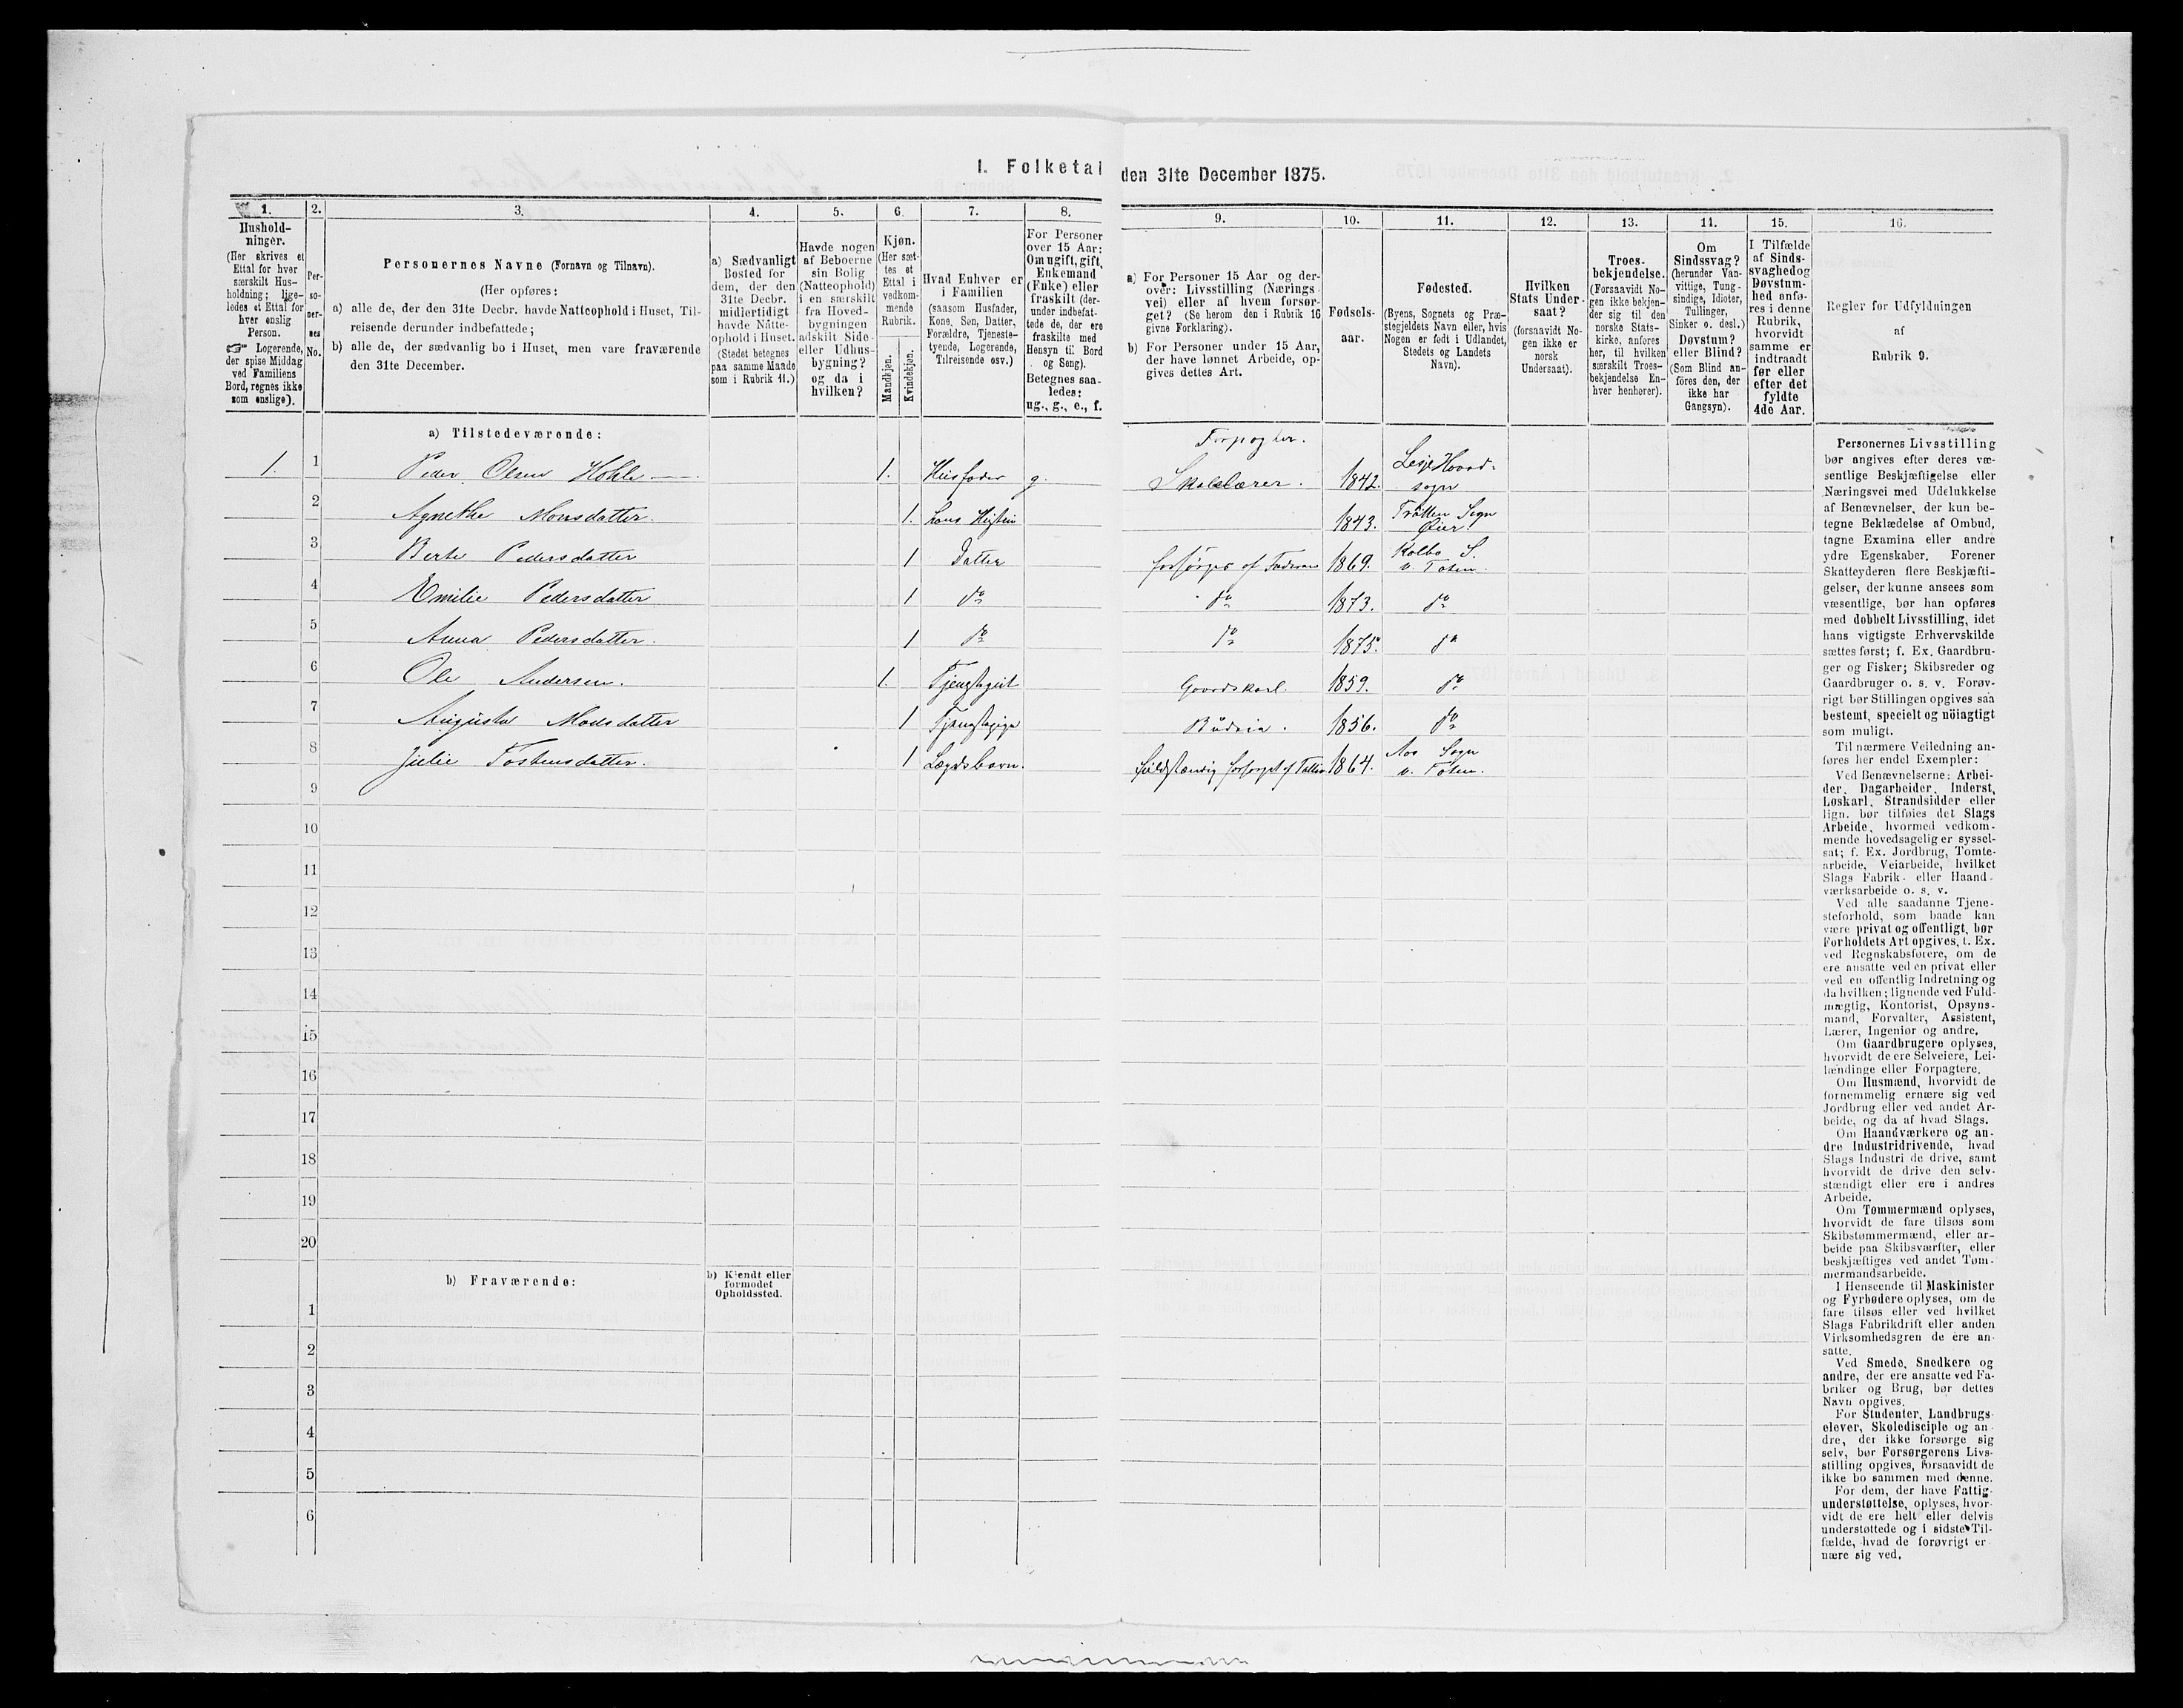 I. Folketal den 31te December 1875.
1.
Husholdninger.
(Her skrives et
Ettal for hver
særskilt Hus-
holdning; lige-
ledes et Ettal for
hver enslig
Person.
☞ Logerende,
der spise Middag
ved Familiens
Bord, regnes ikke
som enslige).
2.
Per-
so-
ner-
nes
No.
3.
Personernes Navne (Fornavn og Tilnavn).
(Her opføres:
a) alle de, der den 31te Decbr. havde Natteophold i Huset, Til-
reisende derunder indbefattede;
b) alle de, der sædvanlig bo i Huset, men vare fraværende
den 31te December.
4.
a) Sædvanligt
Bosted for
dem, der den
31te Decbr.
midlertidigt
havde Natte-
ophold i Huset.
(Stedet betegnes
paa samme Maade
som i Rubrik 11.)
5.
Havde nogen
af Beboerne
sin Bolig
(Natteophold)
i en særskilt
fra Hoved-
bygningen
adskilt Side-
eller Udhus-
bygning?
og da i
hvilken?
6.
Kjøn.
(Her sæt-
tes et
Ettal i
vedkom-
mende
Rubrik.
Mandkjøn.
Kvindekjøn.
7.
Hvad Enhver er
i Familien
(saasom Husfader,
Kone, Søn, Datter,
Forældre, Tjeneste-
tyende, Logerende,
Tilreisende osv.)
8.
For Personer
over 15 Aar:
Om ugift, gift,
Enkemand
(Enke) eller
fraskilt (der-
under indbefat-
tede de, der ere
fraskilte med
Hensyn til Bord
og Seng).
Betegnes saa-
ledes:
ug., g., e., f.
9.
a) For Personer 15 Aar og der-
over: Livsstilling (Nærings-
vei) eller af hvem forsør-
get? (Se herom den i Rubrik 16
givne Forklaring).
b) For Personer under 15 Aar,
der have lønnet Arbeide, op-
gives dettes Art.
10.
Fødsels-
aar.
11.
Fødested.
(Byens, Sognets og Præ-
stegjeldets Navn eller, hvis
Nogen er født i Udlandet,
Stedets og Landets
Navn).
12.
Hvilken
Stats Under-
saat?
(forsaavidt No-
gen ikke er
norsk
Undersaat).
13.
Troes-
bekjendelse.
(Forsaavidt No-
gen ikke bekjen-
der sig til den
norske Stats-
kirke, anføres
her, til hvilken
særskilt Troes-
bekjendelse En-
hver henhører).
14.
Om
Sindssvag?
(herunder Van-
vittige, Tung-
sindige, Idioter,
Tullinger,
Sinker o. desl.)
Døvstum?
eller Blind?
(Som Blind an-
føres den, der
ikke har
Gangsyn).
15.
I Tilfælde
af Sinds-
svaghed og
Døvstum-
hed anfø-
res i denne
Rubrik,
hvorvidt
samme er
indtraadt
før eller
efter det
fyldte
4de Aar.
16.
Regler for Udfyldningen
af
Rubrik 9.
a) Tilstedeværende:
Forpagter.
1. 1 Peder Olsen Hohle 1. Husfader g. Skolelærer. 1842. Lesje Hoved-
sogn
2 Agnethe Monsdatter. 1. hans Hustru 1843. Trötten Sogn
Øier.
3 Berte Pedersdatter 1 Datter forsørges af Faderen 1869. Kolbo S.
v. Toten.
4 Emilie Pedersdatter 1 do do 1873. do
5 Anna Pedersdatter. 1 do do 1875. do
6 Ole Andersen. 1. Tjenstegut Gaardskarl. 1859. do
7 Augusta Monsdatter 1 Tjenstepige Budeia. 1856. do
8 Julie Tostensdatter. 1 Lægdsbarn. fuldstændig forsørget af Fattigv. 1864. Aas Sogn
v. Toten.
9
10
11
12
13
14
15
16
17
18
19
20
b) Fraværende:
b) Kjendt eller
formodet
Opholdssted.
1
2
3
4
5
6
Personernes Livsstilling
bør angives efter deres væ-
sentlige Beskjæftigelse eller
Næringsvei med Udelukkelse
af Benævnelser, der kun be-
tegne Beklædelse af Ombud,
tagne Examina eller andre
ydre Egenskaber. Forener
Skatteyderen flere Beskjæfti-
gelser, der kunne ansees som
væsentlige, bør han opføres
med dobbelt Livsstilling, idet
hans vigtigste Erhvervskilde
sættes først; f. Ex. Gaardbru-
ger og Fisker; Skibsreder og
Gaardbruger o. s. v. Forøv-
rigt bør Stillingen opgives saa
bestemt, specielt og nöiagtigt
som muligt.
Til nærmere Veiledning an-
føres her endel Exempler:
Ved Benævnelserne: Arbei-
der, Dagarbeider, Inderst,
Løskarl, Strandsidder eller
lign. bør tilføies det Slags
Arbeide, hvormed vedkom-
mende hovedsagelig er syssel-
sat; f. Ex. Jordbrug, Tomte-
arbeide, Veiarbeide, hvilket
Slags Fabrik- eller Haand-
værksarbeide o. s. v.
Ved alle saadanne Tjene-
steforhold, som baade kan
være privat og offentligt, bør
Forholdets Art opgives, t. Ex.
ved Regnskabsførere, om de
ere ansatte ved en privat eller
ved en offentlig Indretning og
da hvilken; lignende ved Fuld-
mægtig, Kontorist, Opsyns-
mand, Forvalter, Assistent,
Lærer, Ingeniør og andre.
Om Gaardbrugere oplyses,
hvorvidt de ere Selveiere, Lei-
lændinge eller Forpagtere.
Om Husmænd, hvorvidt de
fornemmelig ernære sig ved
Jordbrug eller ved andet Ar-
beide, og da af hvad Slags.
Om Haandværkere og an-
dre Industridrivende, hvad
Slags Industri de drive, samt
hvorvidt de drive den selv-
stændigt eller ere i andres
Arbeide.
Om Tømmermænd oplyses,
hvorvidt de fare tilsøs som
Skibstømmermænd, eller ar-
beide paa Skibsværfter, eller
beskjæftiges ved andet Tøm-
mermandsarbeide.
I Henseende til Maskinister
og Fyrbødere oplyses, om de
fare tilsøs eller ved hvilket
Slags Fabrikdrift eller anden
Virksomhedsgren de ere an-
satte.
Ved Smede, Snedkere og
andre, der ere ansatte ved Fa-
briker og Brug, bør dettes
Navn opgives.
For Studenter, Landbrugs-
elever, Skoledisciple og an-
dre, der ikke forsørge sig
selv, bør Forsørgerens Livs-
stilling opgives, forsaavidt de
ikke bo sammen med denne.
For dem, der have Fattig-
understøttelse, oplyses, hvor-
vidt de ere helt eller delvis
understøttede og i sidste Til-
fælde, hvad de forøvrigt er-
nære sig ved.